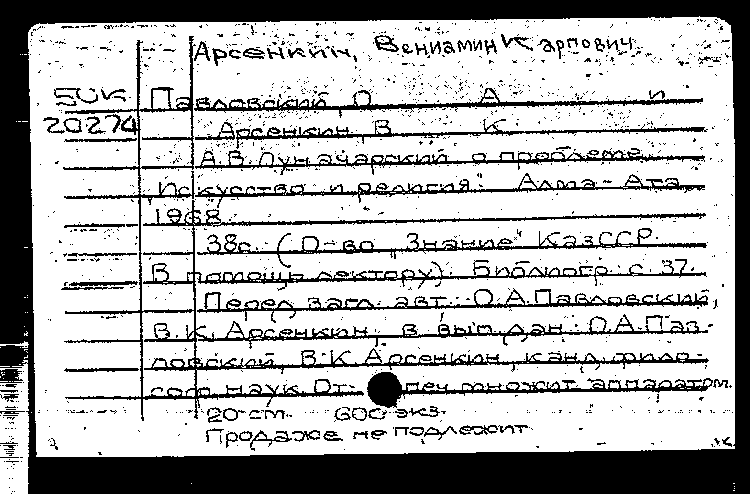 Арсенкин, Вениамин Карпович
50К Павловский, О А и
20274 Арсенкин, В К.
А.В. Луначарский о проблеме
"Искусство и религия". Алма-Ата,
1968.
38с. (О-во "Знание" КазССР.
В помощь лектору). Библиогр. с. 37.
Перед загл. авт.: О.А. Павловский,
В.К. Арсенкин, в вып. дан.: О.А. Пав-
ловский, В.К. Арсенкин, канд. фило-
соф. наук. От- печ. множит. аппаратом.
20 см. 600 экз.
Продаже не подлежит